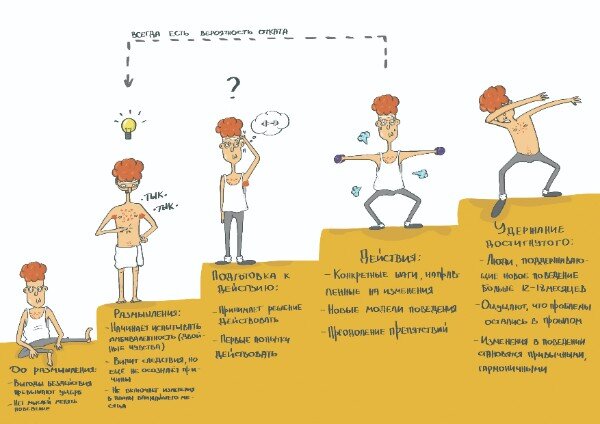 ВСЕГДА ЕСТЬ ВЕРОЯТНОСТЬ ОТКАТА
?
ТЫК-
ТЫК-
До размышления:
- Выгоды бездействия
превышают ущерб
- Нет мыслей менять
поведение
Размышления:
- Начинает испытывать
амбивалентность (двой-
ные чувства)
- Видит следствия, но
еще не осознает при-
чины
- Не включает изменения
в планы ближайшего ме-
сяца
Подготовка к
действию:
- Принимает решение
действовать
- Первые попытки
действовать
Действия:
- Конкретные шаги, направ-
ленные на изменения
- Новые модели поведения
- Преодоление препятствий
Удержание
достигнутого:
- Люди, поддерживаю-
щие новое поведение
больше 12-18 месяцев
- Ощущают, что проблемы
остались в прошлом
- Изменения в поведении
становятся привычными,
гармоничными